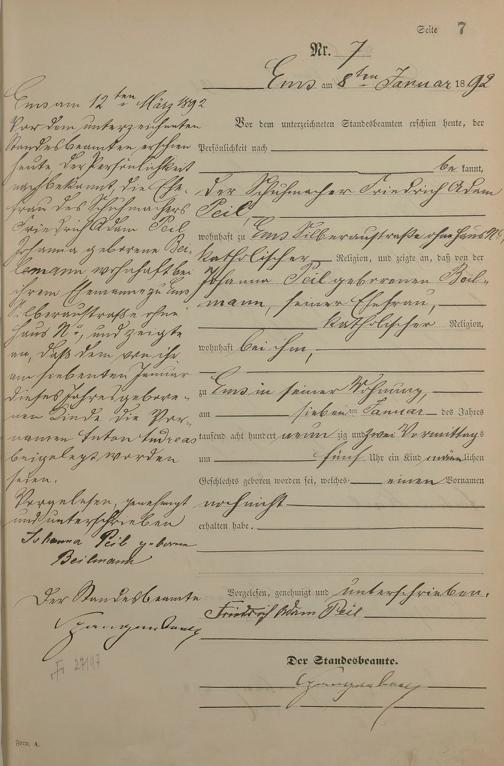 Seite 7
Nr. 7
Ems am 8ten Januar 1892
Vor dem unterzeichneten Standesbeamten erschien heute, der
Persönlichkeit nach
be kannt,
der Schuhmacher Friedrich Adam
Peil,
wohnhaft zu Ems Silberaustraße ohne Haus No,
katholischer Religion, und zeigte an, daß von der
Johanna Peil geborenen Beil-
mann, seiner Ehefrau,
katholischer Religion,
wohnhaft bei ihm,
zu Ems in seiner Wohnung,
am sieben ten Januar des Jahres
tausend acht hundert neun zig und zwei Vormittags
um fünf Uhr ein Kind männlichen
Geschlechts geboren worden sei, welches einen Vornamen
noch nicht
erhalten habe.
Vorgelesen, genehmigt und unterschrieben.
Friedrich Adam Peil
Der Standesbeamte.
Ems am 12ten März 1892
Vor dem unterzeichneten
Standesbeamten erschien
heute, der Persönlichkeit
nach bekannt, die Ehe-
frau des Schuhmachers
Friedrich Adam Peil
Johanna geborene Bei-
lmann wohnhaft bei
ihrem Ehemanne zu Ems
Silberaustraße ohne
Haus No, und zeigte
an, daß dem von ihr
am siebenten Januar
dieses Jahres gebore-
nen Kinde die Vor-
namen Anton Andreas
beigelegt worden
seien.
Vorgelesen, genehmigt
und unterschrieben
Johanna Peil geborene
Beilmann
Der Standesbeamte
Form. A.